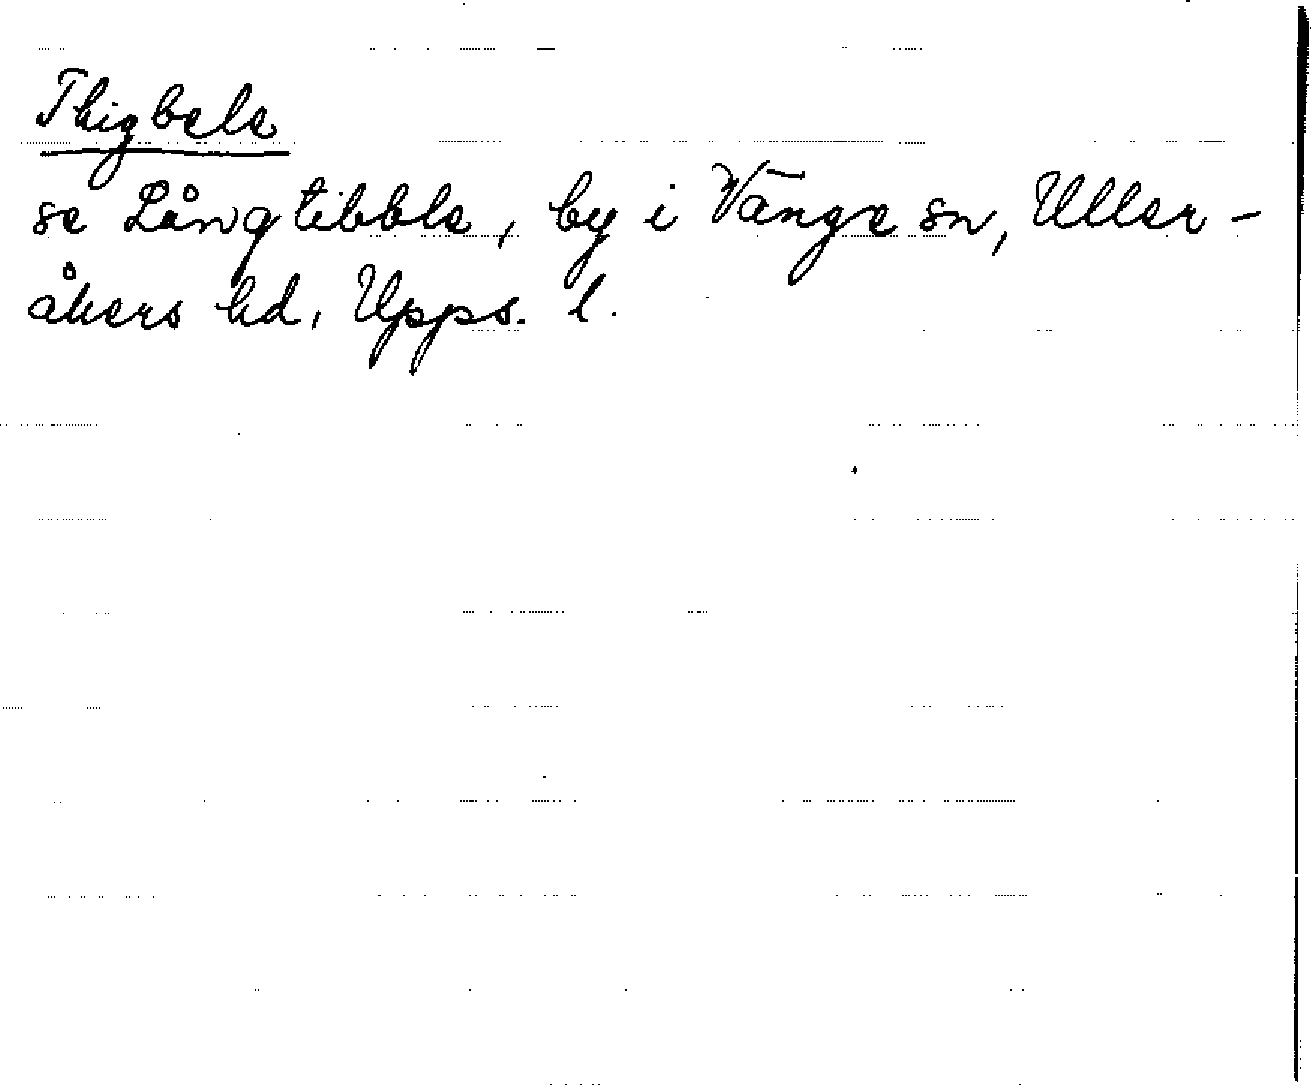 Thigbele
se Långtibble, by i Vänge sn, Uller-
åkers hd, Upps. l.